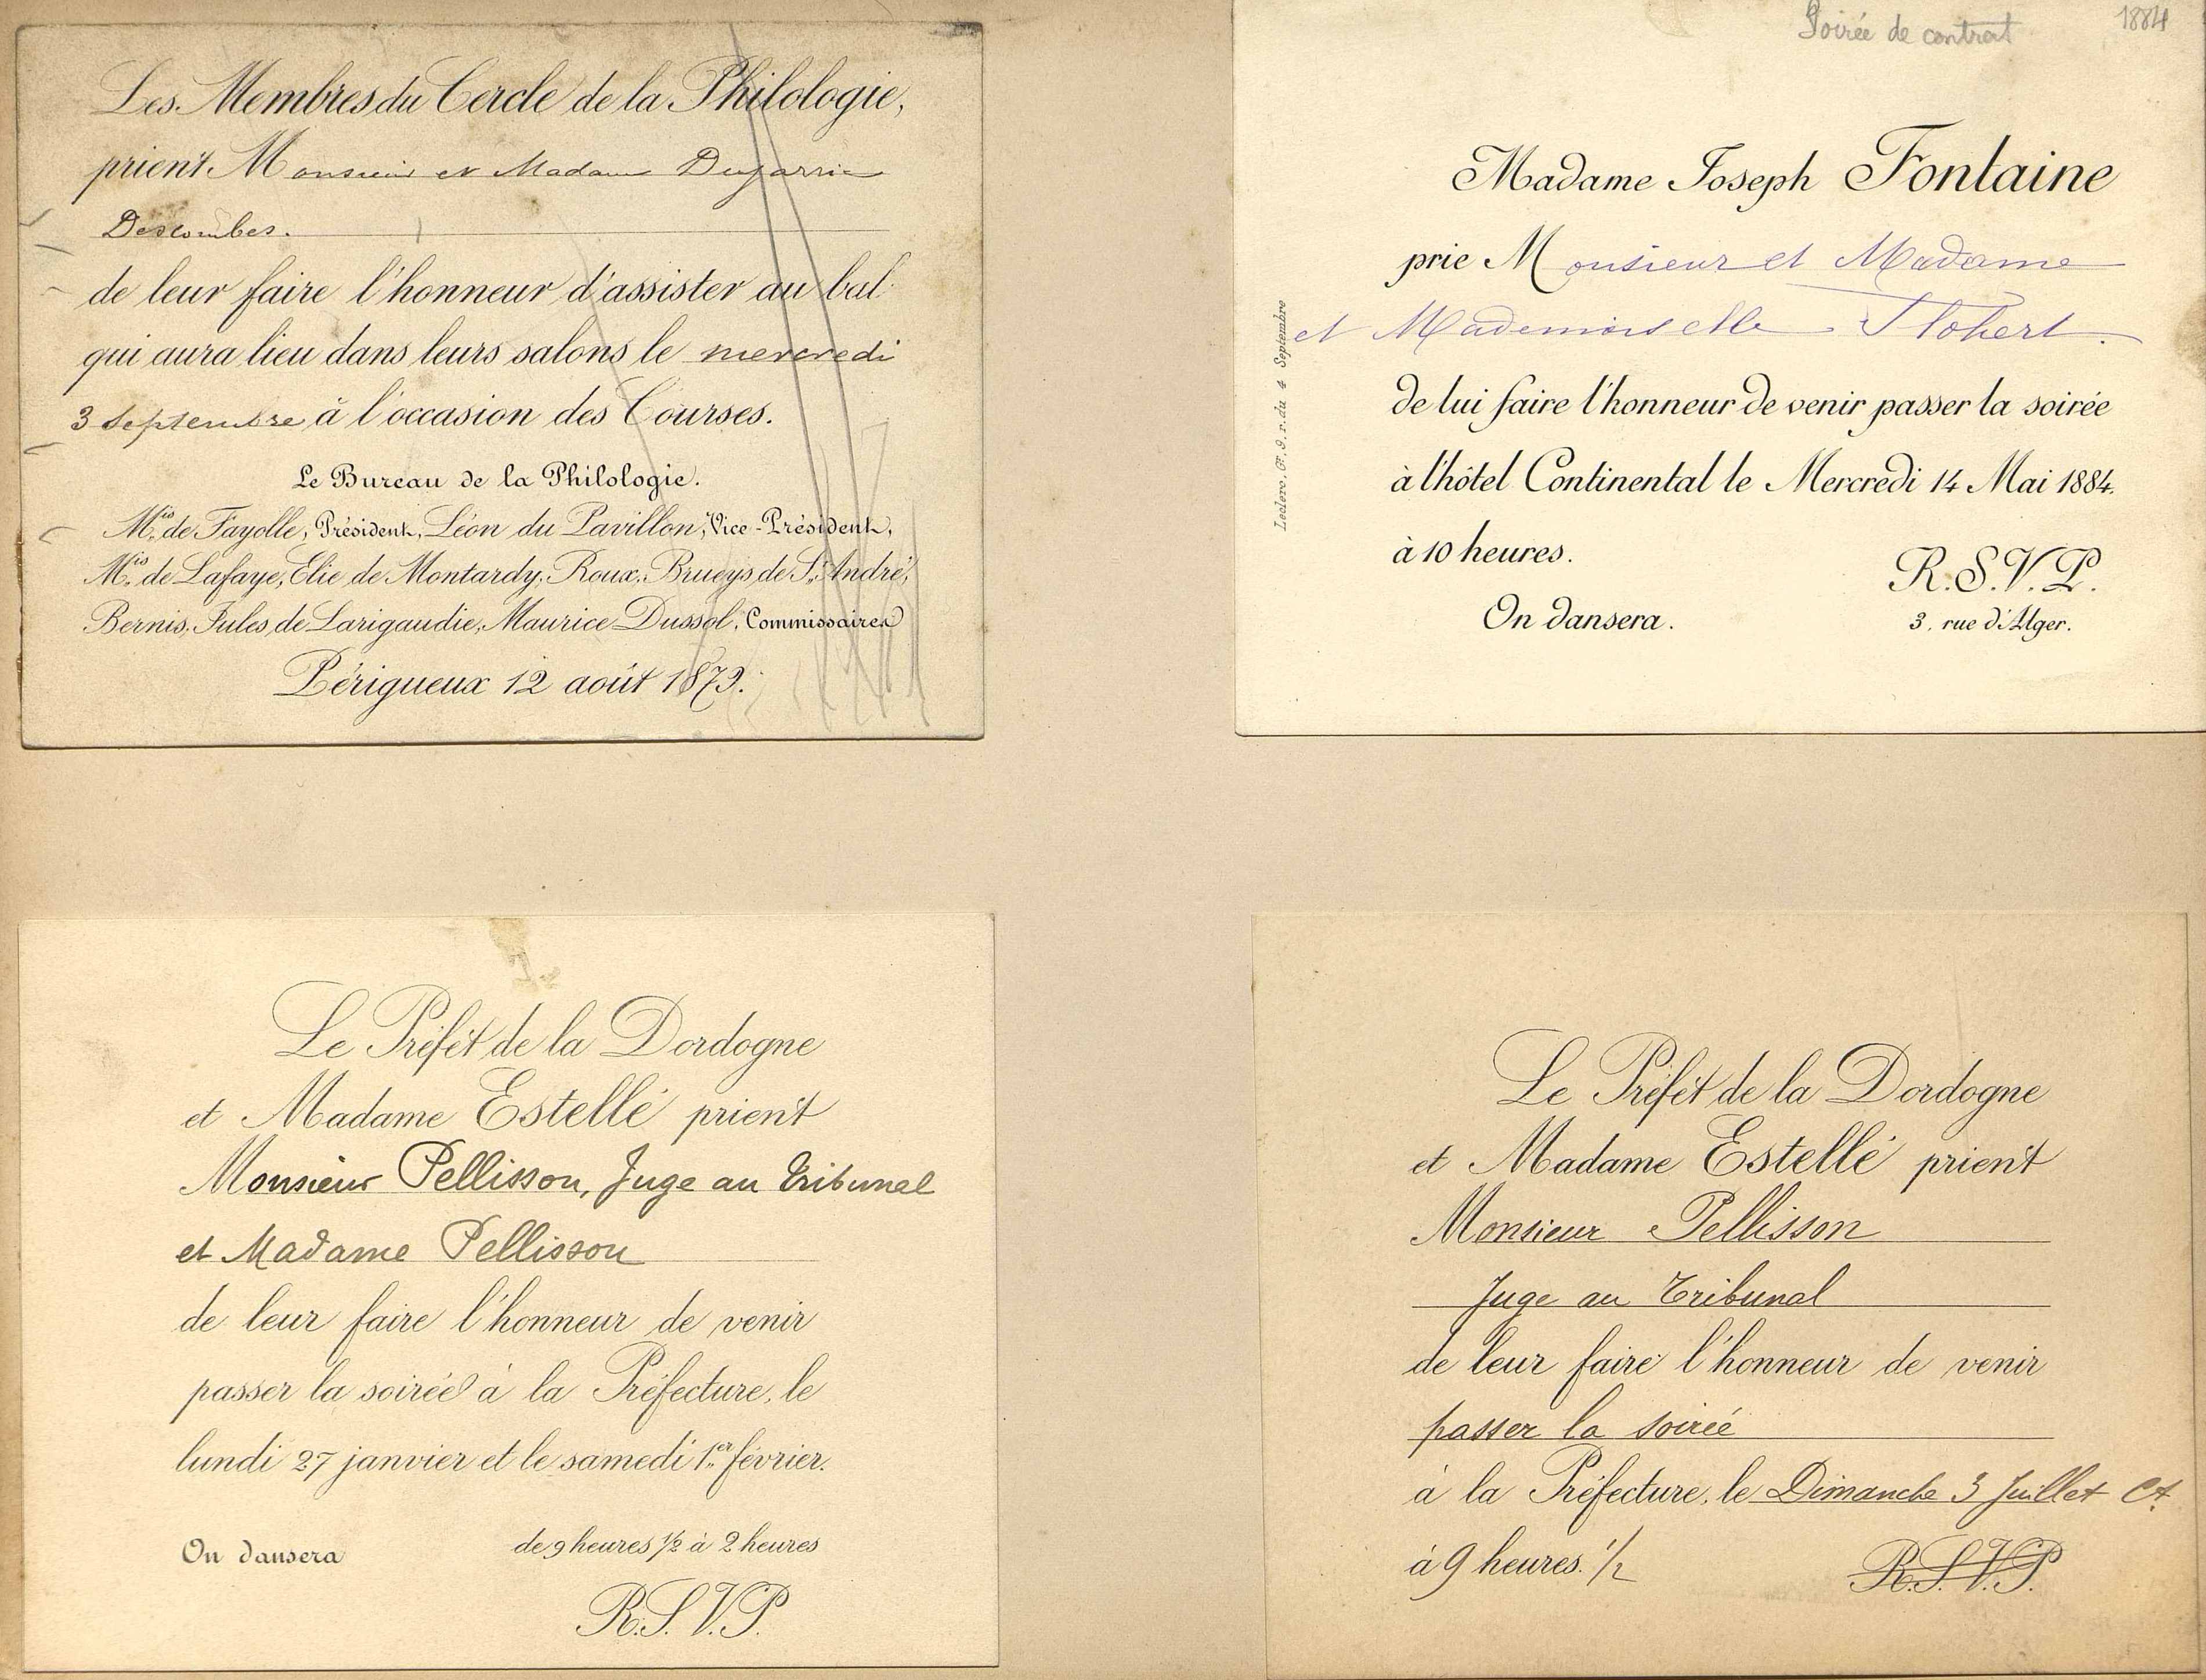 Les Membres du Cercle de la Philologie,
prient Monsieur et Madame Dujarric
Descombes.
de leur faire l'honneur d'assister au bal
qui aura lieu dans leurs salons le mercredi
3 septembre à l'occasion des Courses.
Le Bureau de la Philologie.
Mis de Fayolle, Président, Léon du Pavillon, Vice-Président,
Mis de Lafaye, Elie de Montardy, Roux, Brueys de St André,
Bernis, Jules de Larigaudie, Maurice Dussol, Commissaires
Périgueux 12 août 1879.
Soirée de contrat 1884
Madame Joseph Fontaine
prie Monsieur et Madame
et Mademoiselle Flobert.
de lui faire l'honneur de venir passer la soirée
à l'hôtel Continental le Mercredi 14 Mai 1884.
à 10 heures.
R.S.V.P.
On dansera.
3, rue d'Alger.
Leclere, F, 9, r. du 4 Septembre
Le Préfet de la Dordogne
et Madame Estellé prient
Monsieur Pellisson, Juge au Tribunal
et Madame Pellisson
de leur faire l'honneur de venir
passer la soirée à la Préfecture, le
lundi 27 janvier et le samedi 1er février.
On dansera de 9 heures 1/2 à 2 heures
R.S.V.P.
Le Préfet de la Dordogne
et Madame Estellé prient
Monsieur Pellisson
Juge au Tribunal
de leur faire l'honneur de venir
passer la soirée
à la Préfecture, le Dimanche 3 Juillet Ct
à 9 heures. 1/2 R.S.V.P.